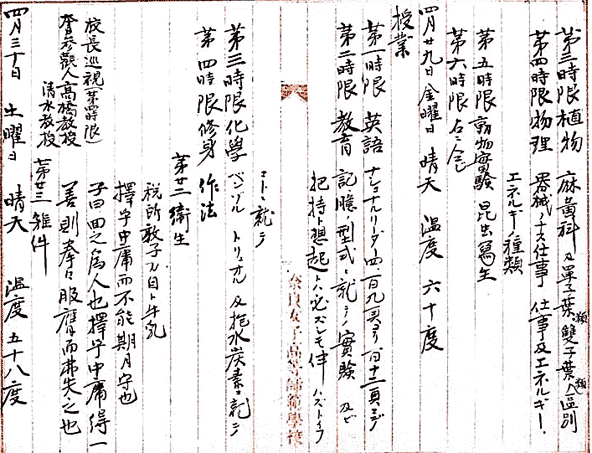 第三時限植物 麻黄科及單子葉類雙子葉類ノ區別
第四時限物理 器械ノナス仕事 仕事及エネルギー、
エネルギーノ種類
第五時限動物實驗 昆虫寫生
第六時限 占こ
四月廿九日 金曜日 晴天 温度 六十度
授業
第一時限 英語 ナショナルリーダー四 百九頁ヨリ百十二頁マデ
第二時限 教育 記臆ノ型式ニ就テノ實驗 及ビ
把持ト想起トハ必ズシモ伴ハズトイフ
コトニ就テ
第三時限化學 ベンゾル トリュオル 及抱水炭素ニ就テ
第四時限修身 作法
第廿二 衛生
税所敦子 自ト牛乳
擇乎中庸而不能期月守也
子曰回之爲人也擇乎中庸得一
善則拳々服膺而弗失之也
校長巡視(第四時限)
參觀人高橋教授
清水教授
第廿三 雜件
四月三十日 土曜日 晴天 温度 五十八度
奈良女子高等師範學校